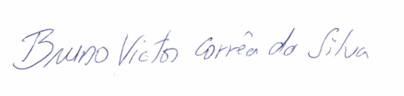 Bruno Victor Corrêa da Silva